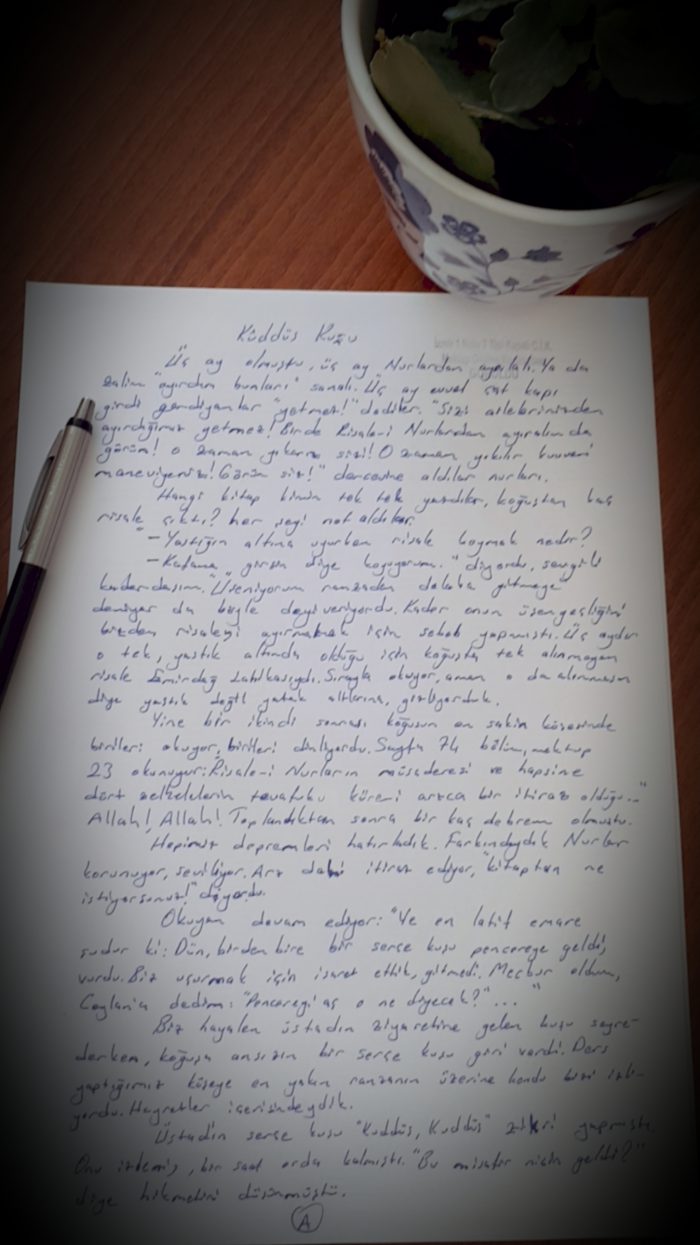 Kûddüs Kuşu
Üç ay olmuştu, üç ay Nurlardan ayrılalı. Ya da
zalim "ayırdım bunları" sanalı. Üç ay evvel çat kapı
girdi gardiyanlar "yetmez!" dediler. "Sizi ailelerinizden
ayırdığımız yetmez! Birde Risale-i Nurlardan ayıralım da
görün! O zaman yıkarız sizi! O zaman yıkılır kuvvei
maneviyeniz! Görün siz!" dercesine aldılar nurları.
Hangi kitap kimin tek tek yazdılar, koğuştan kaç
risale çıktı? her şeyi not aldılar.
"– Yastığın altına uyurken risale koymak nedir?
– Kafama girsin diye koyuyorum." diyordu, sevgili
kader daşım. "Üşeniyorum ranzadan dolaba gitmeye"
demiyor da böyle deyiveriyordu. Kader onun üşengeçliğini
bizden risaleyi ayırmamak için sebeb yapmıştı. Üç aydır
o tek, yastık altında olduğu için koğuşta tek alınmayan
risale Emirdağ Lahikasıydı. Sırayla okuyor, aman o da alınmasın
diye yastık değil yatak altlarına, gizliyorduk.
Yine bir ikindi sonrası koğuşun en sakin köşesinde
birileri okuyor, birileri dinliyordu. Sayfa 74 bölüm, mektup
23 okunuyor: Risale-i Nurların müsaderesi ve hapsine
dört zelzelelerin tevafuku küre-i arzca bir itiraz olduğu..."
Allah! Allah! Toplandıktan sonra bir kaç deprem olmuştu.
Hepimiz depremleri hatırladık. Farkındaydık Nurlar
korunuyor, seviliyor. Arz dahi itiraz ediyor, "kitaptan ne
istiyorsunuz!" diyordu.
Okuyan devam ediyor: "Ve en latif emare
şudur ki: Dün, birden bire bir serçe kuşu pencereye geldi,
vurdu. Biz uçurmak için işaret ettik, gitmedi. Mecbur oldum,
Ceylan'a dedim: "Pencereyi aç o ne diyecek?"... "
Biz hayalen üstadın ziyaretine gelen kuşu seyre-
derken, koğuşa ansızın bir serçe kuşu giri verdi. Ders
yaptığımız köşeye en yakın ranzanın üzerine kondu bizi izli-
yordu. Hayretler içerisindeydik.
Üstadın serçe kuşu "Kuddüs, Kuddüs" zikri yapmıştı.
Onu izlemiş, bir saat orda kalmıştı. "Bu misafir niçin geldi?"
diye hikmetini düşünmüştü.
A